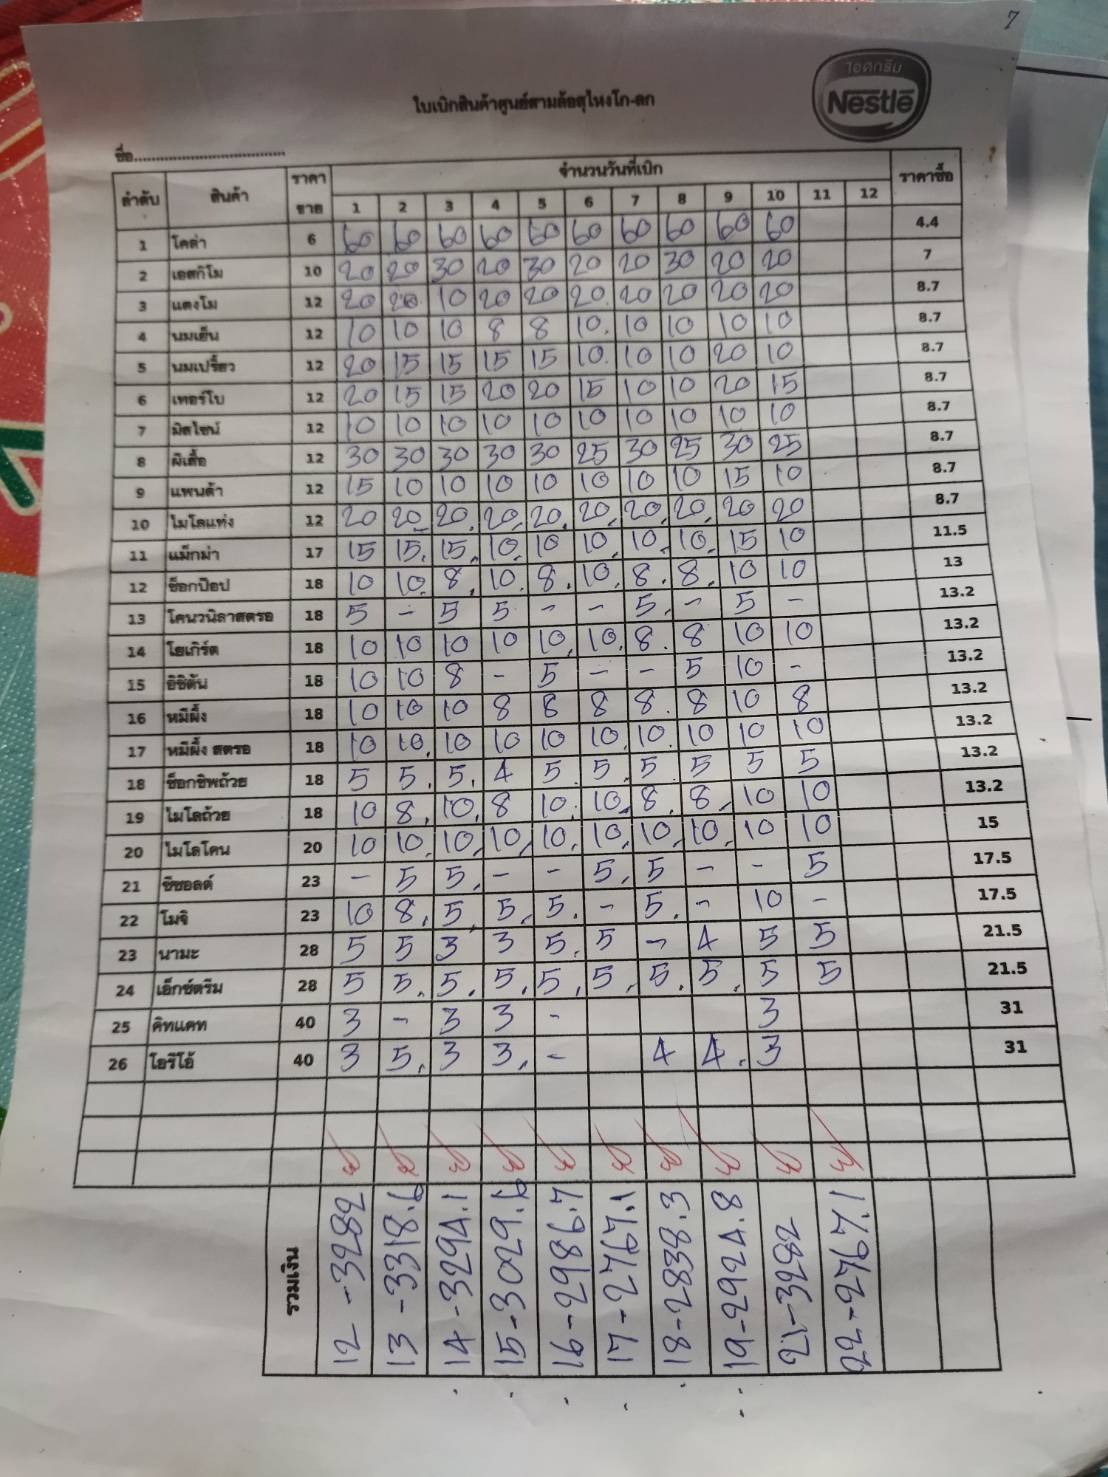 7
ไอศกรีม
Nestlé
ใบเบิกสินค้าศูนย์สามล้อสุไหงโก-ลก
ชื่อ......................................
ลำดับ สินค้า ราคาขาย จำนวนวันที่เบิก ราคาซื้อ
1 2 3 4 5 6 7 8 9 10 11 12
1 โคล่า 6 60 60 60 60 60 60 60 60 60 60 4.4
2 เอสกิโม 10 20 20 30 20 30 20 20 30 20 20 7
3 แตงโม 12 20 20 10 20 20 20 20 20 20 20 8.7
4 นมเย็น 12 10 10 10 8 8 10 10 10 10 10 8.7
5 นมเปรี้ยว 12 20 15 15 15 15 10 10 10 20 10 8.7
6 เทอร์โบ 12 20 15 15 20 20 15 10 10 20 15 8.7
7 มิตไชน์ 12 10 10 10 10 10 10 10 10 10 10 8.7
8 ผีเสื้อ 12 30 30 30 30 30 25 30 25 30 25 8.7
9 แพนด้า 12 15 10 10 10 10 10 10 10 15 10 8.7
10 ไมโลแท่ง 12 20 20 20 20 20 20 20 20 20 20 8.7
11 แม็กม่า 17 15 15 15 10 10 10 10 10 15 10 11.5
12 ช็อกป๊อป 18 10 10 8 10 8 10 8 8 10 10 13
13 โคนวนิลาสตรอ 18 5 - 5 5 - - 5 - 5 - 13.2
14 โยเกิร์ต 18 10 10 10 10 10 10 8 8 10 10 13.2
15 อิชิตัน 18 10 10 8 - 5 - - 5 10 - 13.2
16 หมีผึ้ง 18 10 10 10 8 8 8 8 8 10 8 13.2
17 หมีผึ้ง สตรอ 18 10 10 10 10 10 10 10 10 10 10 13.2
18 ช็อกชิพถ้วย 18 5 5 5 4 5 5 5 5 5 5 13.2
19 ไมโลถ้วย 18 10 8 10 8 10 10 8 8 10 10 13.2
20 ไมโลโคน 20 10 10 10 10 10 10 10 10 10 10 15
21 ซีซอลต์ 23 - 5 5 - - 5 5 - - 5 17.5
22 โมจิ 23 10 8 5 5 5 - 5 - 10 - 17.5
23 นามะ 28 5 5 3 3 5 5 - 4 5 5 21.5
24 เอ็กซ์ตรีม 28 5 5 5 5 5 5 5 5 5 5 21.5
25 คิทแคท 40 3 - 3 3 - 3 31
26 โอรีโอ้ 40 3 5 3 3 - 4 4 3 31
รวมเงิน
12 - 3282
13 - 3318.6
14 - 3294.1
15 - 3029.6
16 - 2986.7
17 - 2767.1
18 - 2838.3
19 - 2924.8
21 - 3282
22 - 2767.1